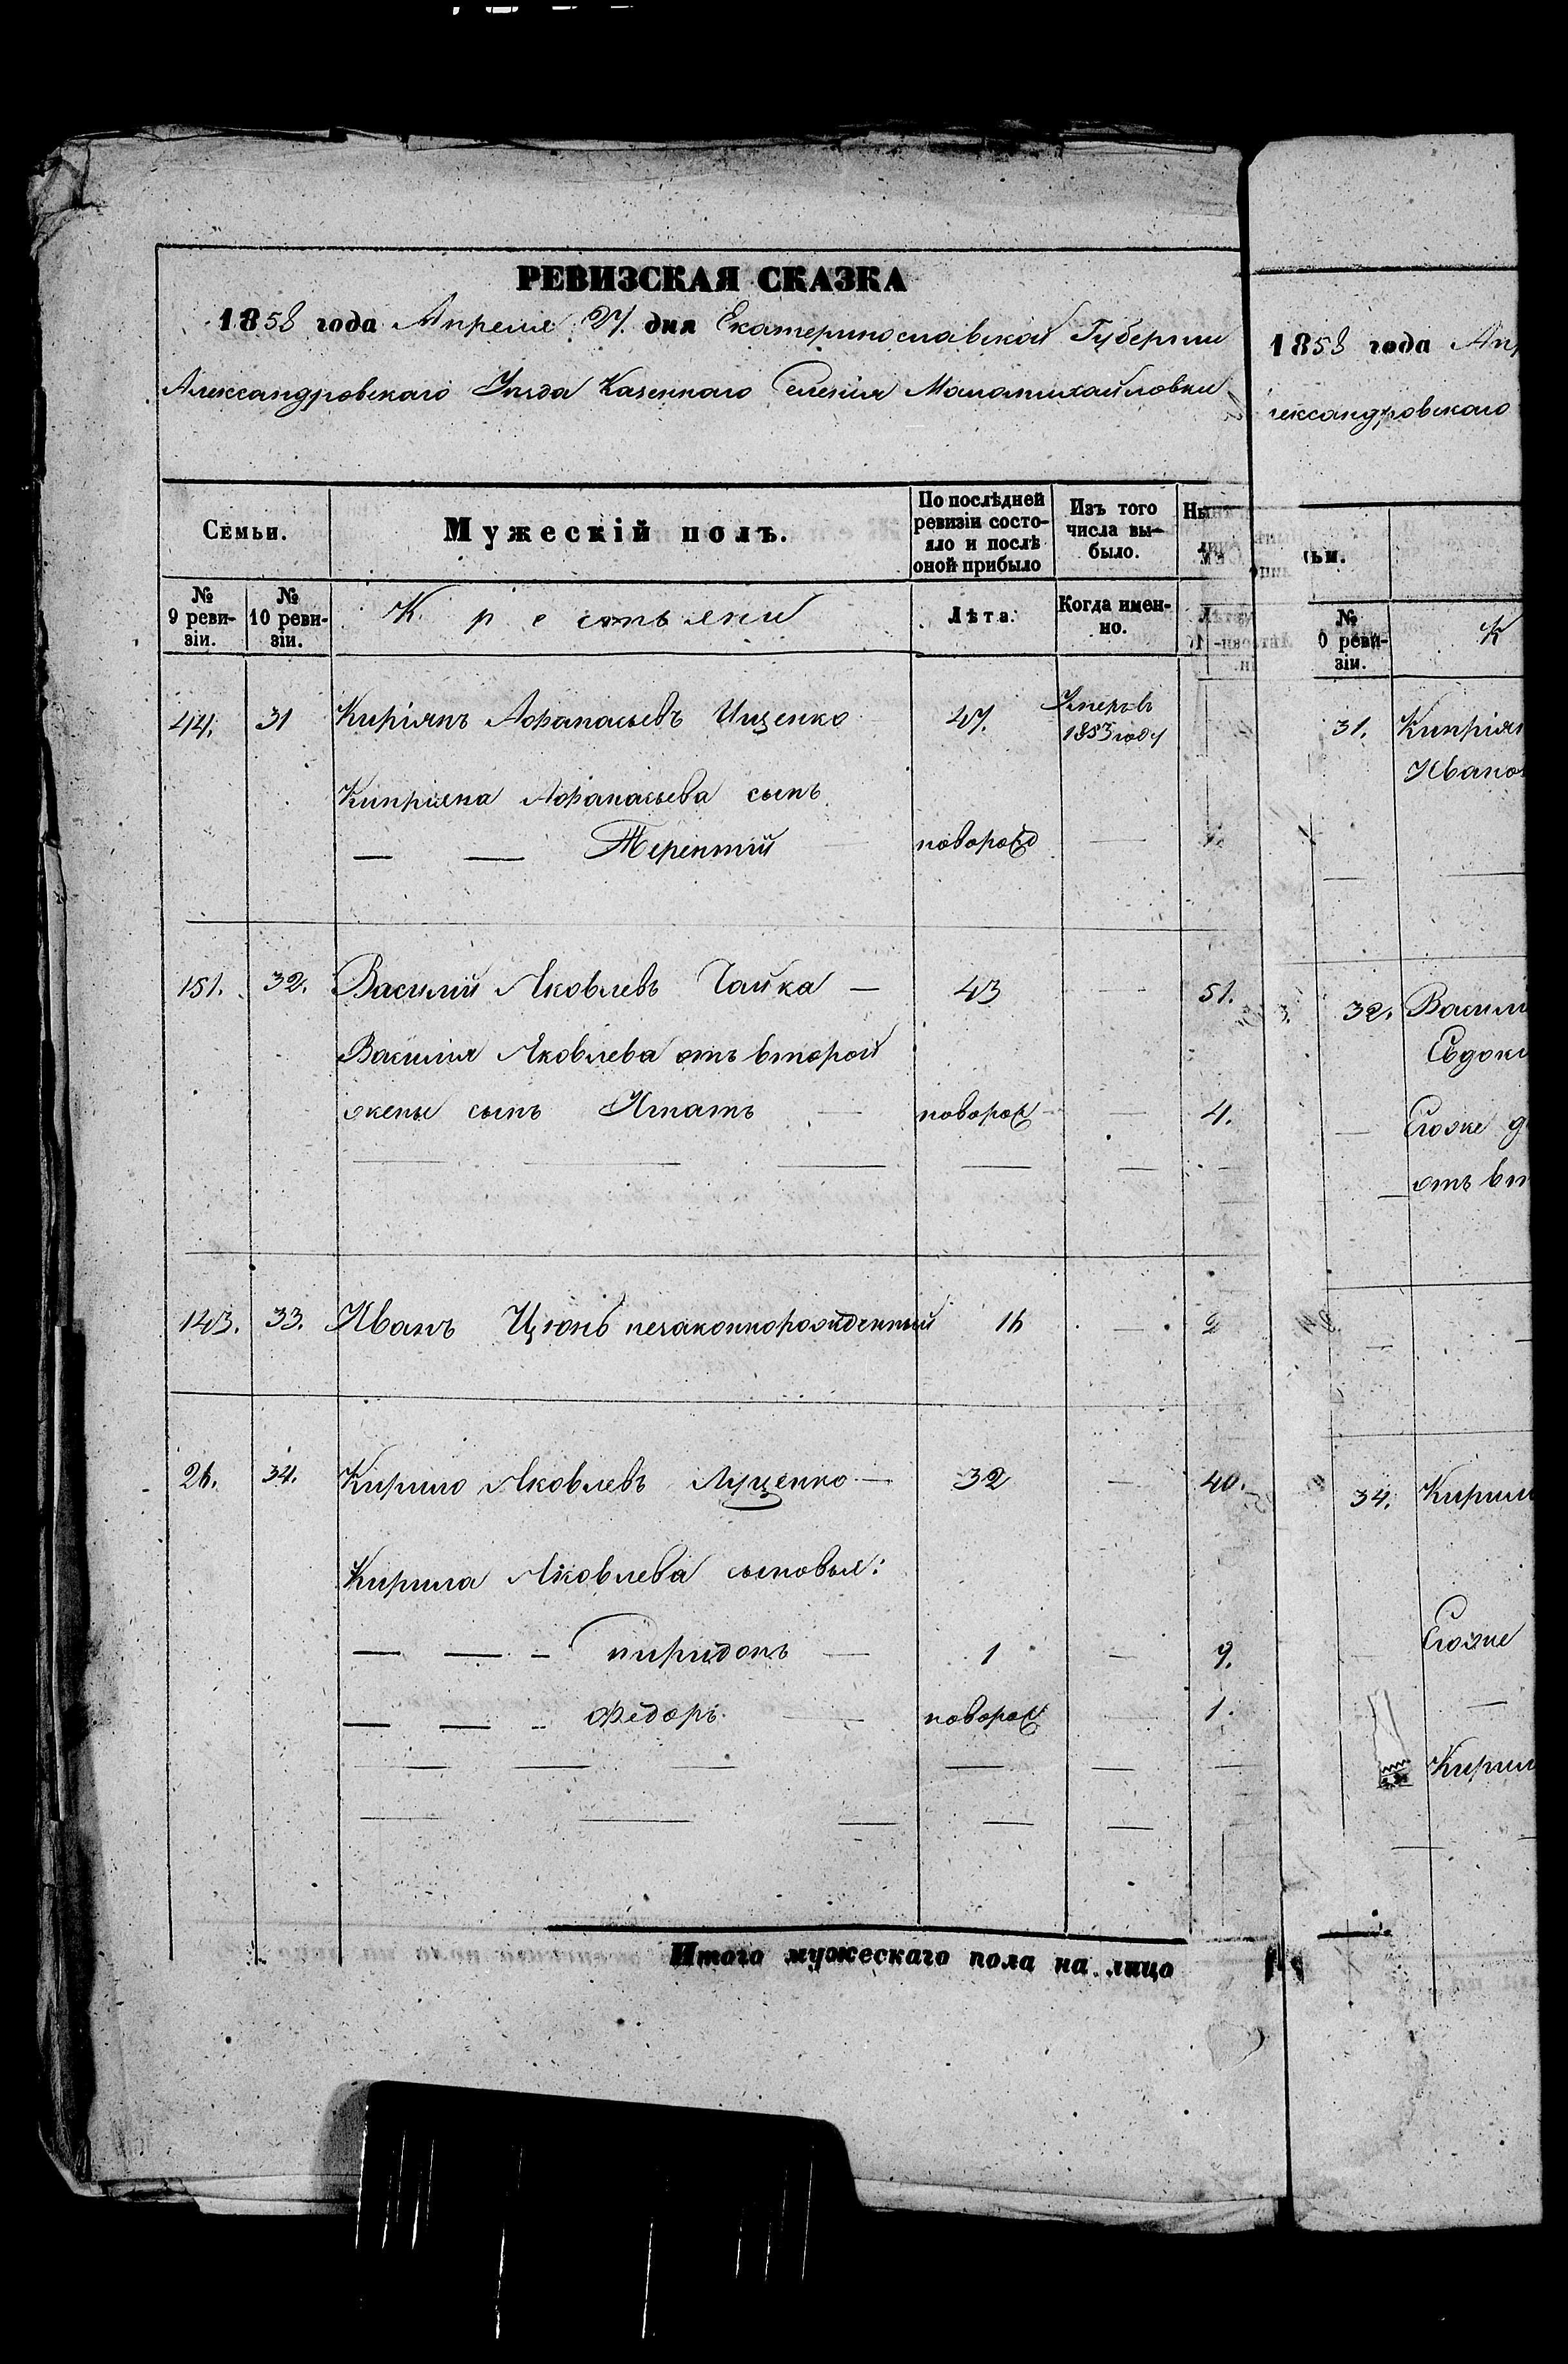 РЕВИЗСКАЯ СКАЗКА
1858 года Апреля 27. дня Екатеринославской Губернии
Александровскаго Уѣзда Казеннаго Селенія Маломихайловки
Семьи.
Мужескій полъ.
По послѣдней ревизіи состояло и послѣ оной прибыло
Изъ того числа выбыло.
Ны
№ 9 ревизіи.
№ 10 ревизіи.
Крестьяни
Лѣта.
Когда именно.
44. 31 Кипріянъ Афанасьевъ Ищенко 47. Умеръ въ 1853 году
Кипріяна Афанасьева сынъ
— — Терентій новорожд —
151. 32. Василій Яковлевъ Чайка — 43 — 51.
Василія Яковлева отъ второй
жены сынъ Игнатъ — новорож — 4.
143. 33. Иванъ незаконнорожденный 16 —
26. 34. Кирило Яковлевъ Луценко — 32 — 40.
Кирила Яковлева сыновья:
— — – Спиридонъ — 1 — 9.
— — – Федоръ — новорож — 1.
Итого мужескаго пола на лицо
1858 года Ап
лександровскаго
ьи.
№ 0 ревизіи.
К
31. Кипріян
Иванов
32. Васили
Евдоки
Егоже д
отъ вт
34. Кирил
Егоже
Кирил